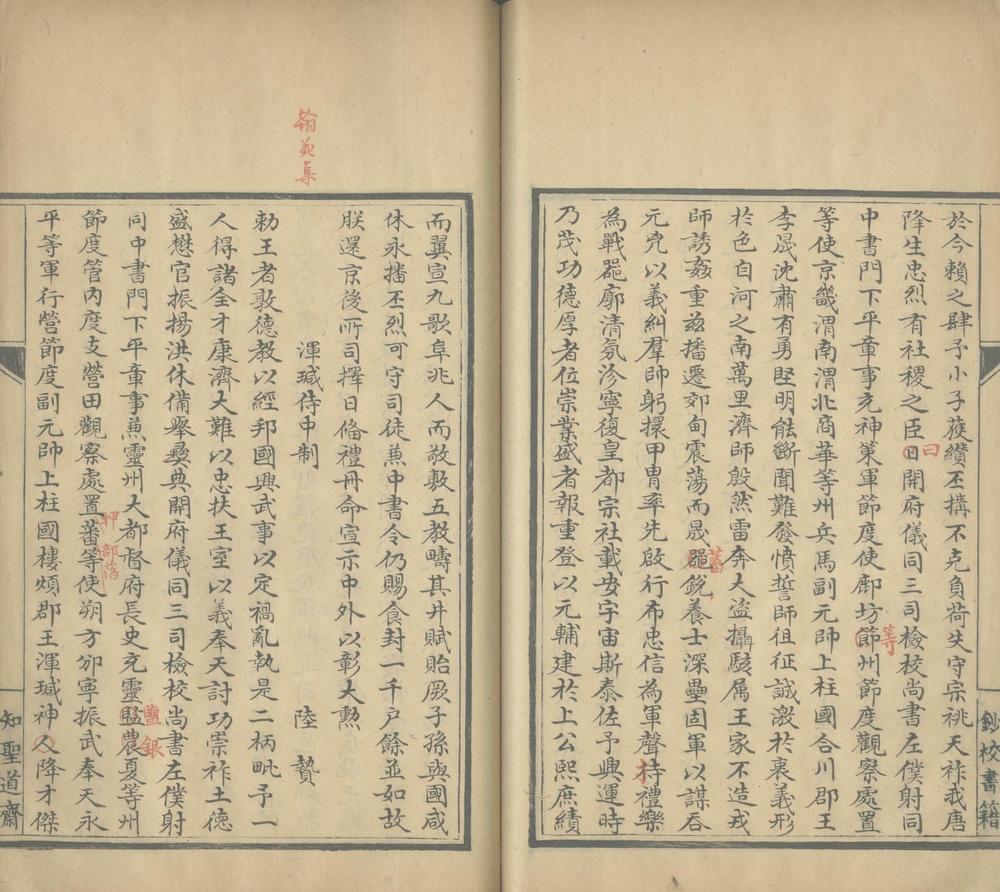 於今賴之肆予小子獲纘丕搆不克負荷失守宗祧天祚我唐
降生忠烈有社稷之臣日開府儀同三司檢校尚書左僕射同
曰
中書門下平章事充神策軍節度使鄜坊節州節度觀察處置
等
等使京畿渭南渭北商華等州兵馬副元帥上柱國合川郡王
李晟沈肅有勇堅明能斷聞難發憤誓師徂征誠激於衷義形
於色自河之南萬里濟師殷然雷奔大盗攝駭属王家不造戎
師誘姦重茲播遷郊甸震蕩而晟器銳養士深壘固軍以謀吞
蓄
元兇以義糾羣帥躬擐甲冑率先啟行布忠信為軍聲持禮樂
為戰器廓清氛沴寧復皇都宗社載安宇宙斯泰佐予興運時
乃茂功德厚者位崇業盛者報重登以元輔建於上公熙庶績
鈔校書籍
而翼宣九歌阜兆人而敬敷五教疇其井賦貽厥子孫與國咸
休永播丕烈可守司徒兼中書令仍賜食封一千戶餘並如故
朕還京後所司擇日偹禮冊命宣示中外以彰大勲
翰苑集
渾瑊侍中制 陸贄
勅王者敦德教以經邦國興武事以定禍亂執是二柄毗予一
人得諸全才康濟大難以忠扶王室以義奉天討功崇祚土德
盛懋官振揚洪休備舉彝典開府儀同三司檢校尚書左僕射
同中書門下平章事兼靈州大都督府長史充靈盬農夏等州
鹽銀
節度管內度支營田觀察處置蕃等使朔方邠寧振武奉天永
押部落
平等軍行營節度副元帥上柱國樓煩郡王渾瑊神㕛降才傑
知聖道齋